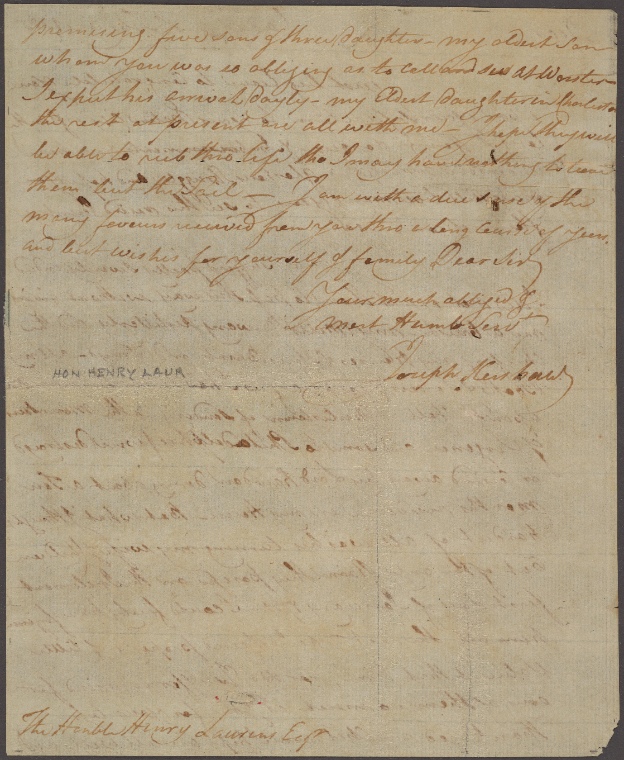 promising five sons & three Daughter – my oldest Son
whom you was so obliging as to call and see at Worster –
I expect his arrival dayly – my oldest Daughter in Charleston
the rest at present are all with me – I hope they will
be able to rub thro life tho I may have nothing to leave
them but the soil – I am with a due sense of the
many favours received from you thro a long course of years,
and best wishes for yourself & family Dear Sir
Your much obliged &
most Humb Servt
Joseph Kershaw
HON. HENRY LAUR
The Honble Henry Laurens Esqr